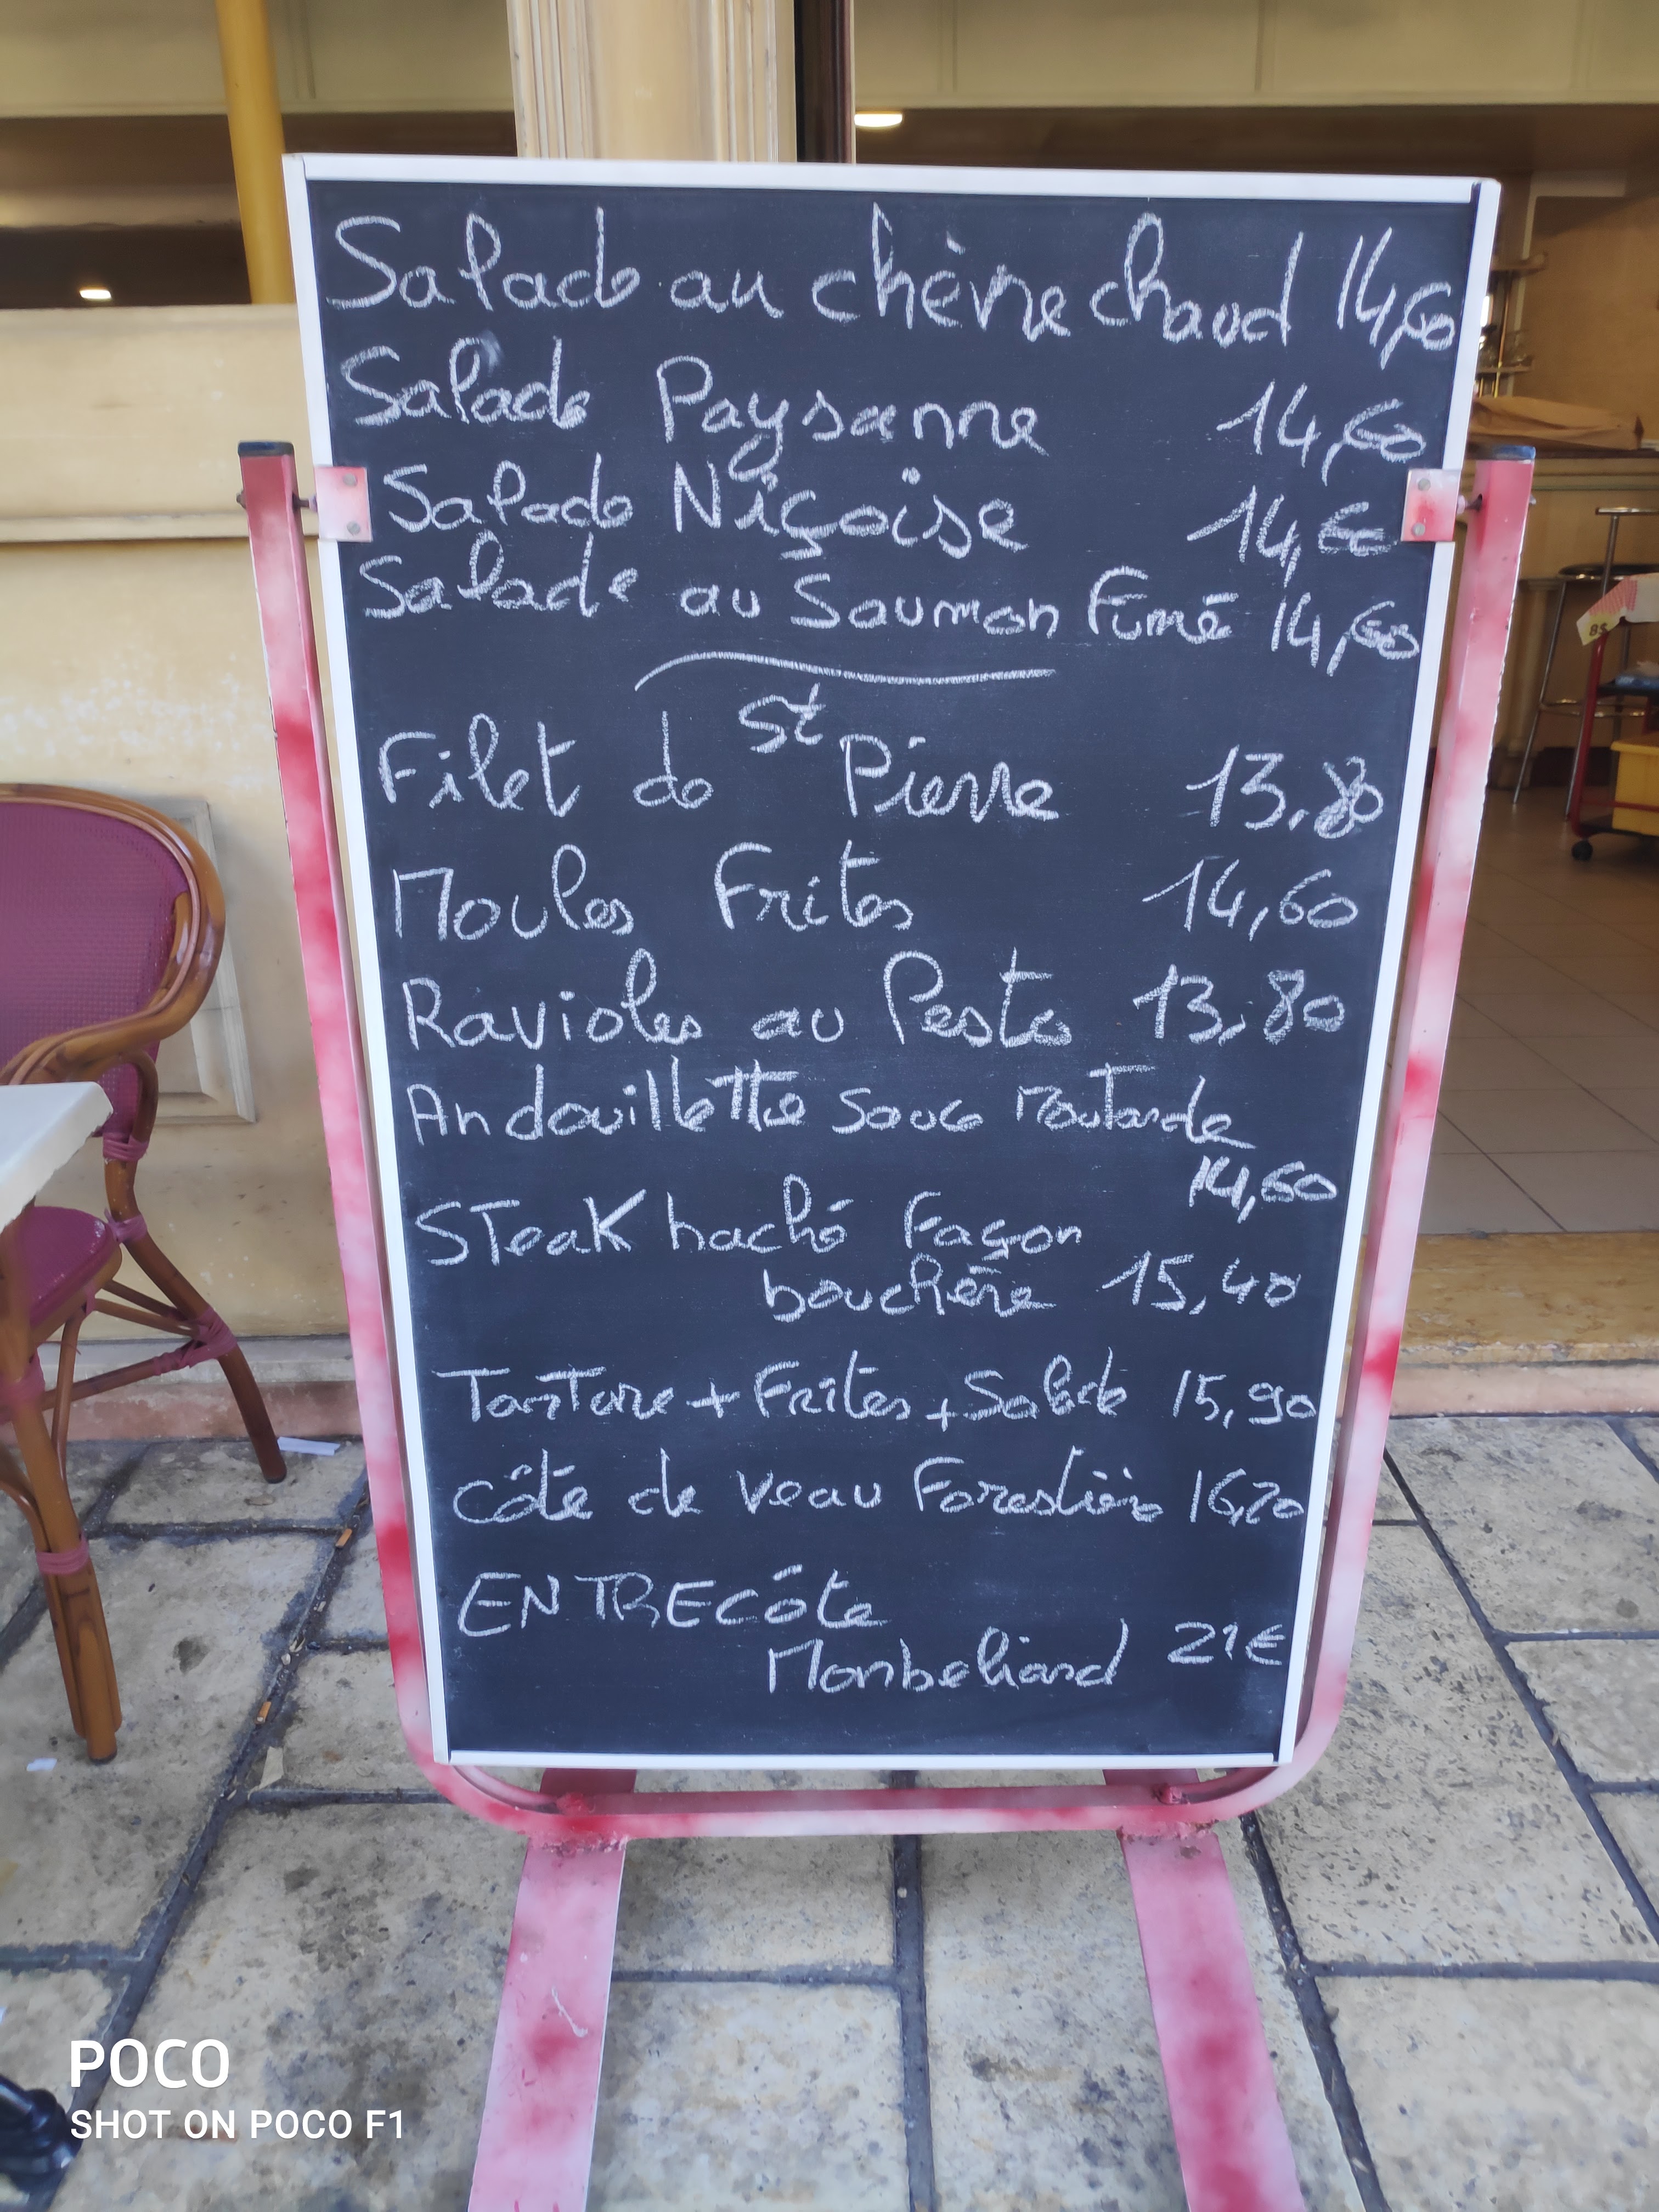 Salade au chèvre chaud 14,60
Salade Paysanne 14,60
Salade Niçoise 14,€
Salade au Saumon Fumé 14,60
Filet de St Pierre 13,80
Moules Frites 14,60
Ravioles au Pesto 13,80
Andouillette sauce moutarde
14,60
STeak haché Façon
bouchère 15,40
TarTare + Frites + Salade 15,90
côte de veau Forestière 16,20
ENTRECôte
Monbeliard 21€
POCO
SHOT ON POCO F1